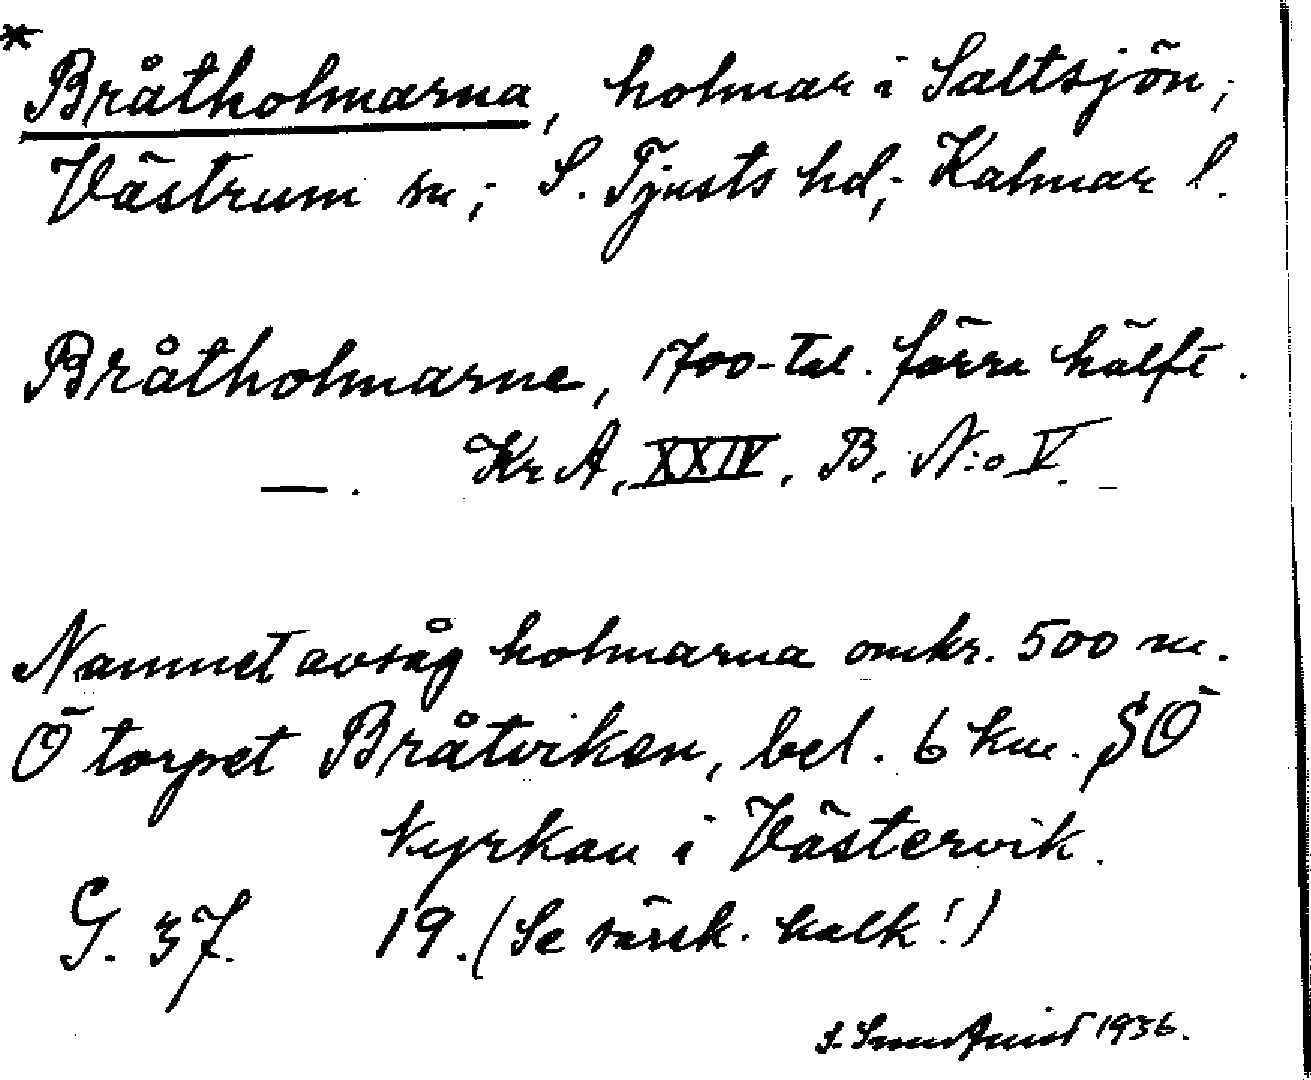 * Bråtholmarna, holmar i Saltsjön;
Västrum sn; S. Tjusts hd; Kalmar l.
Bråtholmarne, 1700-tal. förra hälft.
—. Kr A, XXIV, B, N:o V. –
Namnet avsåg holmarna omkr. 500 m.
Ö torpet Bråtviken, bel. 6 km. SÖ
kyrkan i Västervik.
G. 37. 19. (Se särsk. kalk!)
1936.